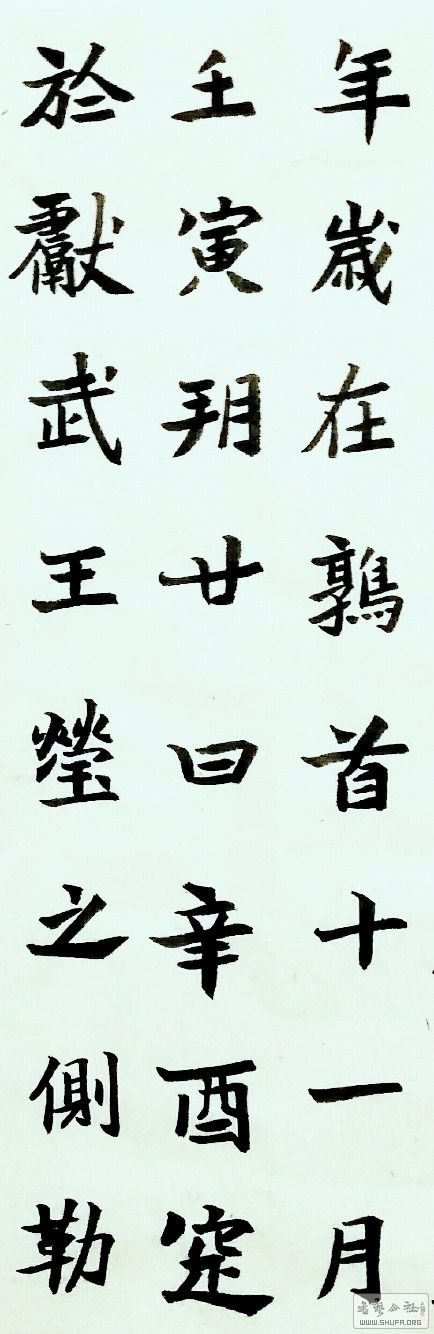 年歲在鶉首十一月
壬寅朔廿日辛酉窆
於獻武王瑩之側勒
書藝公社
WWW.SHUFA.ORG